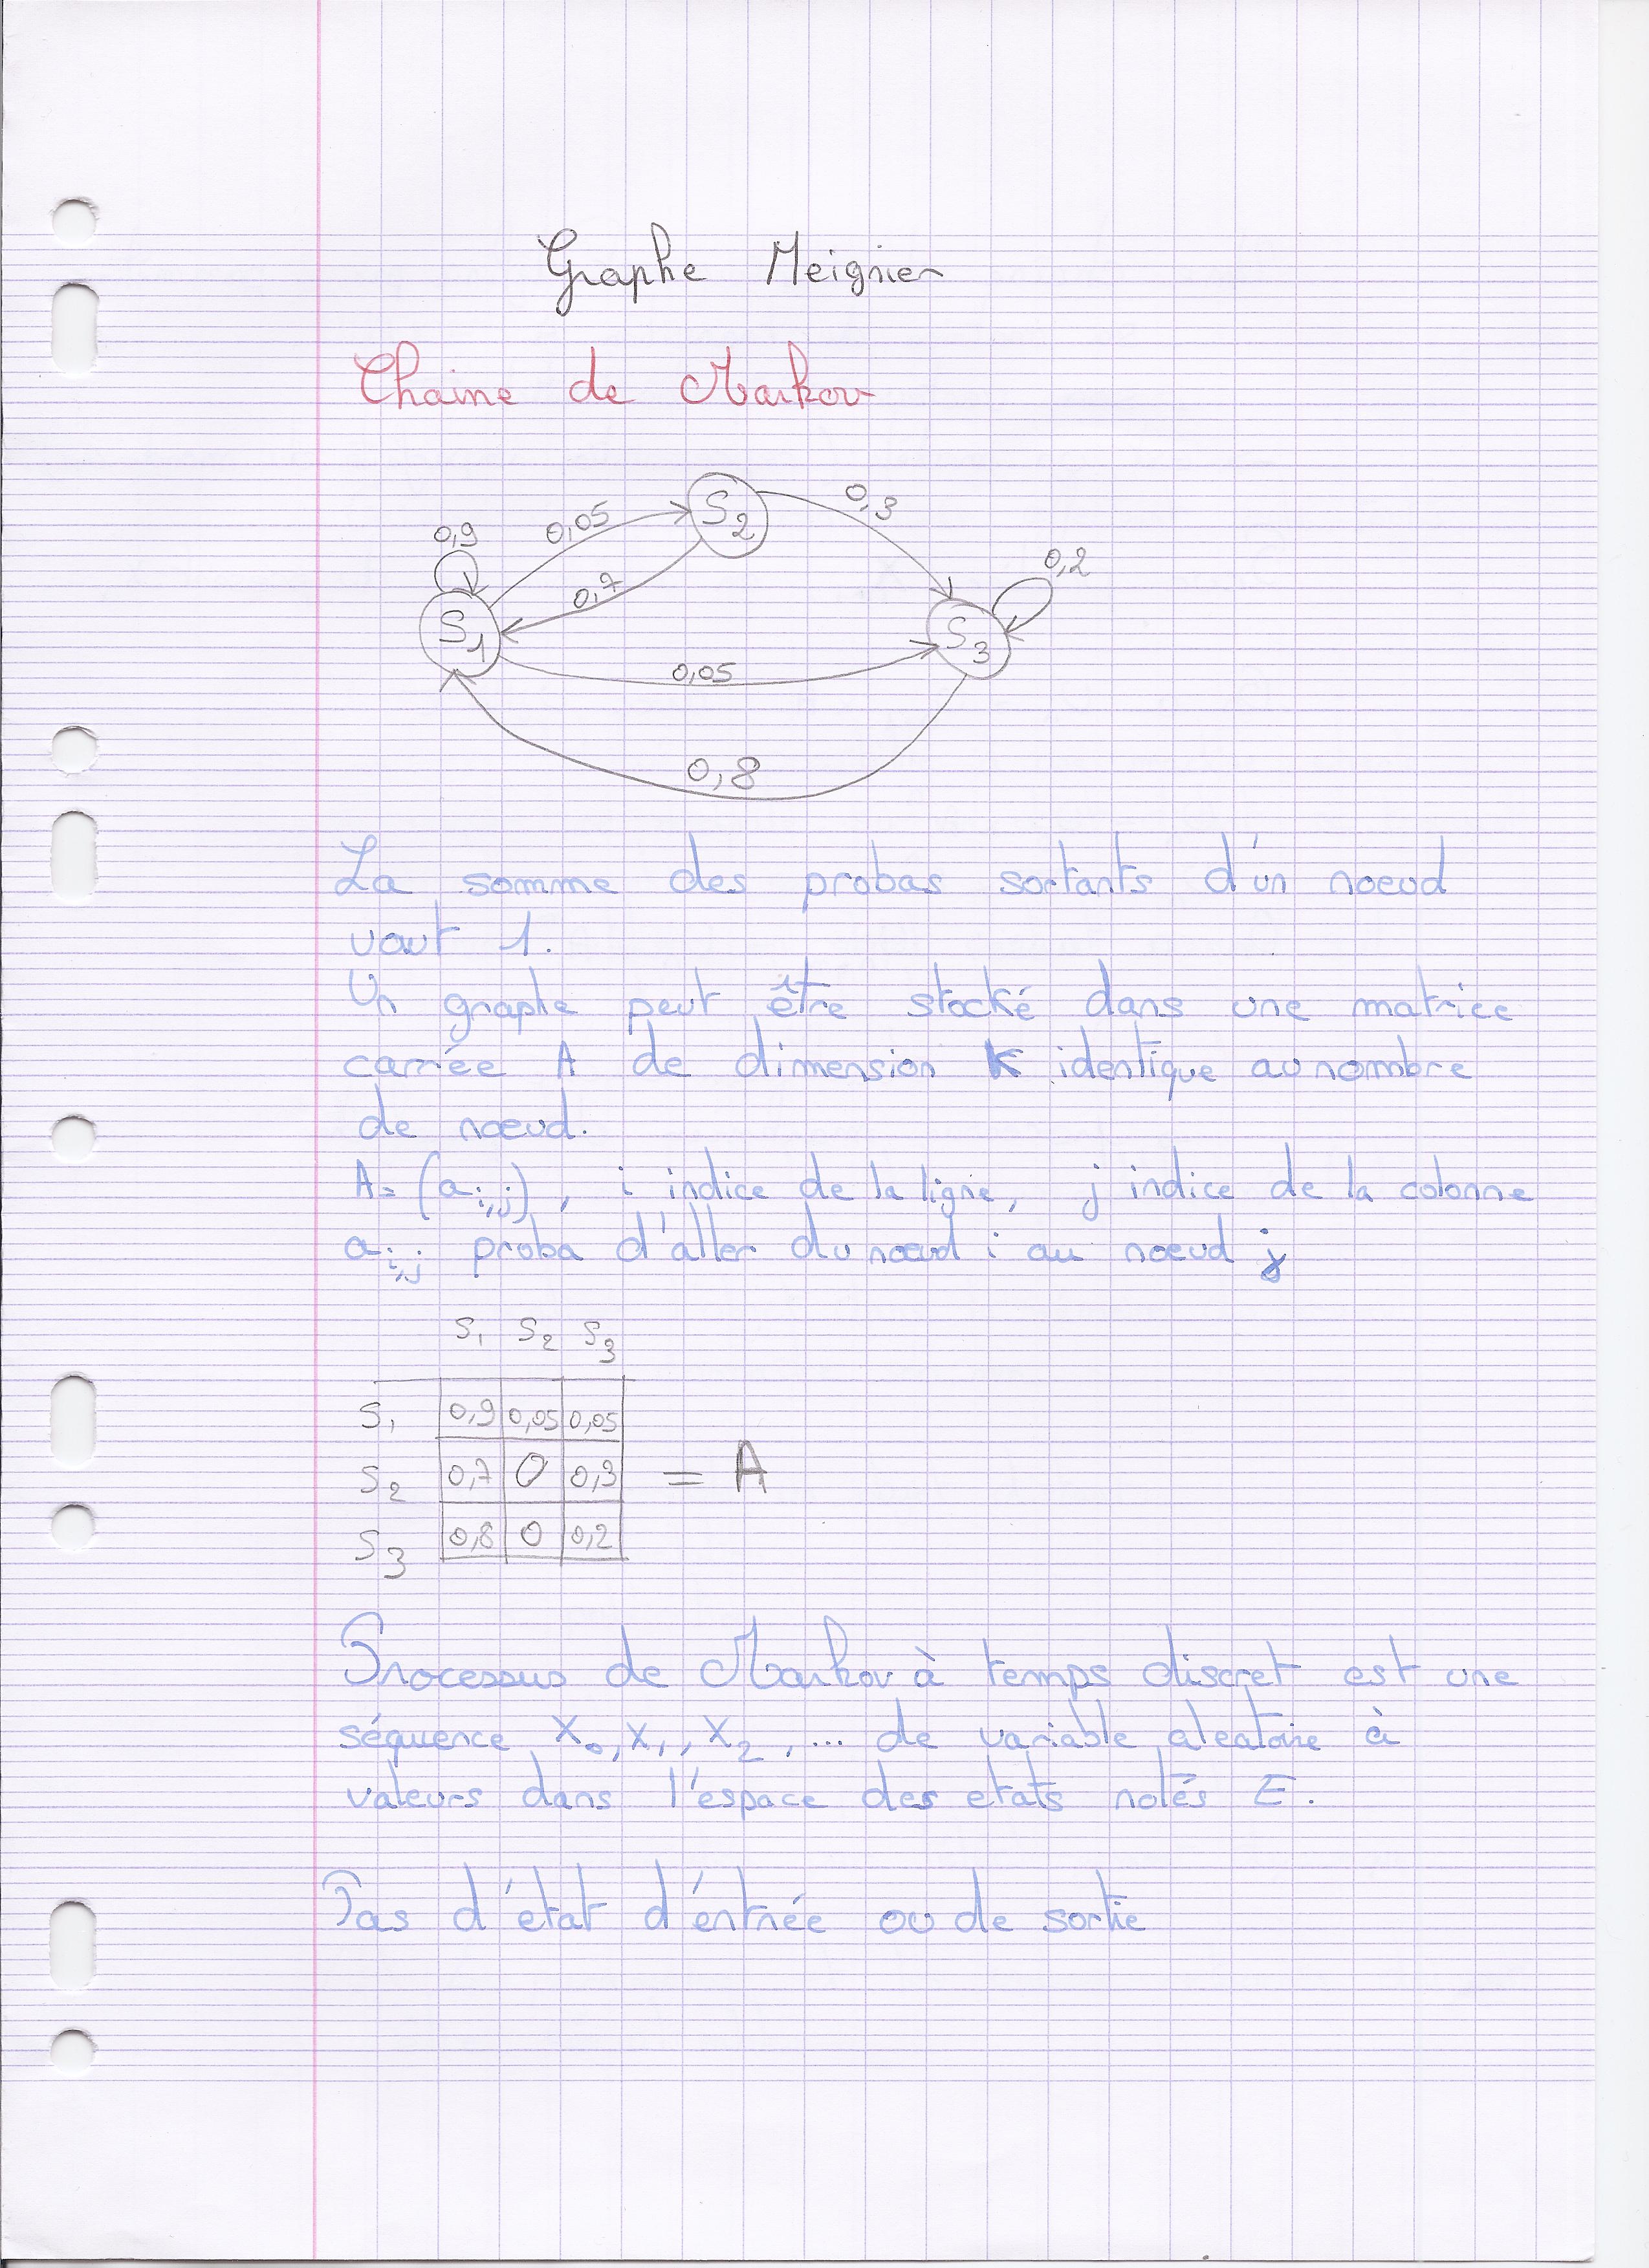 Graphe Meignier
Chaine de Markov
0,9
0,05
S2
0,3
0,2
0,7
S1
S3
0,05
0,8
La somme des probas sortants d'un noeud
vaut 1.
Un graphe peut être stocké dans une matrice
carrée A de dimension K identique au nombre
de nœud.
A= (a i,j) , i indice de la ligne, j indice de la colonne
a i,j proba d'aller du nœud i au noeud j
S1 S2 S3
S1 0,9 0,05 0,05
S2 0,7 0 0,3 = A
S3 0,8 0 0,2
Processus de Markov à temps discret est une
séquence X0, X1, X2, ... de variable aleatoire à
valeurs dans l'espace des etats notés E.
Pas d'état d'entrée ou de sortie